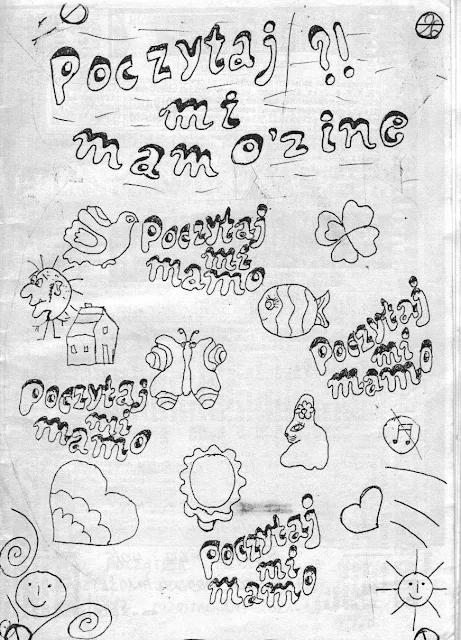 Poczytaj ?!
mi
mam o'zine
Poczytaj
mi
mamo
Poczytaj
mi
mamo
Poczytaj
mi
mamo
Poczytaj
mi
mamo